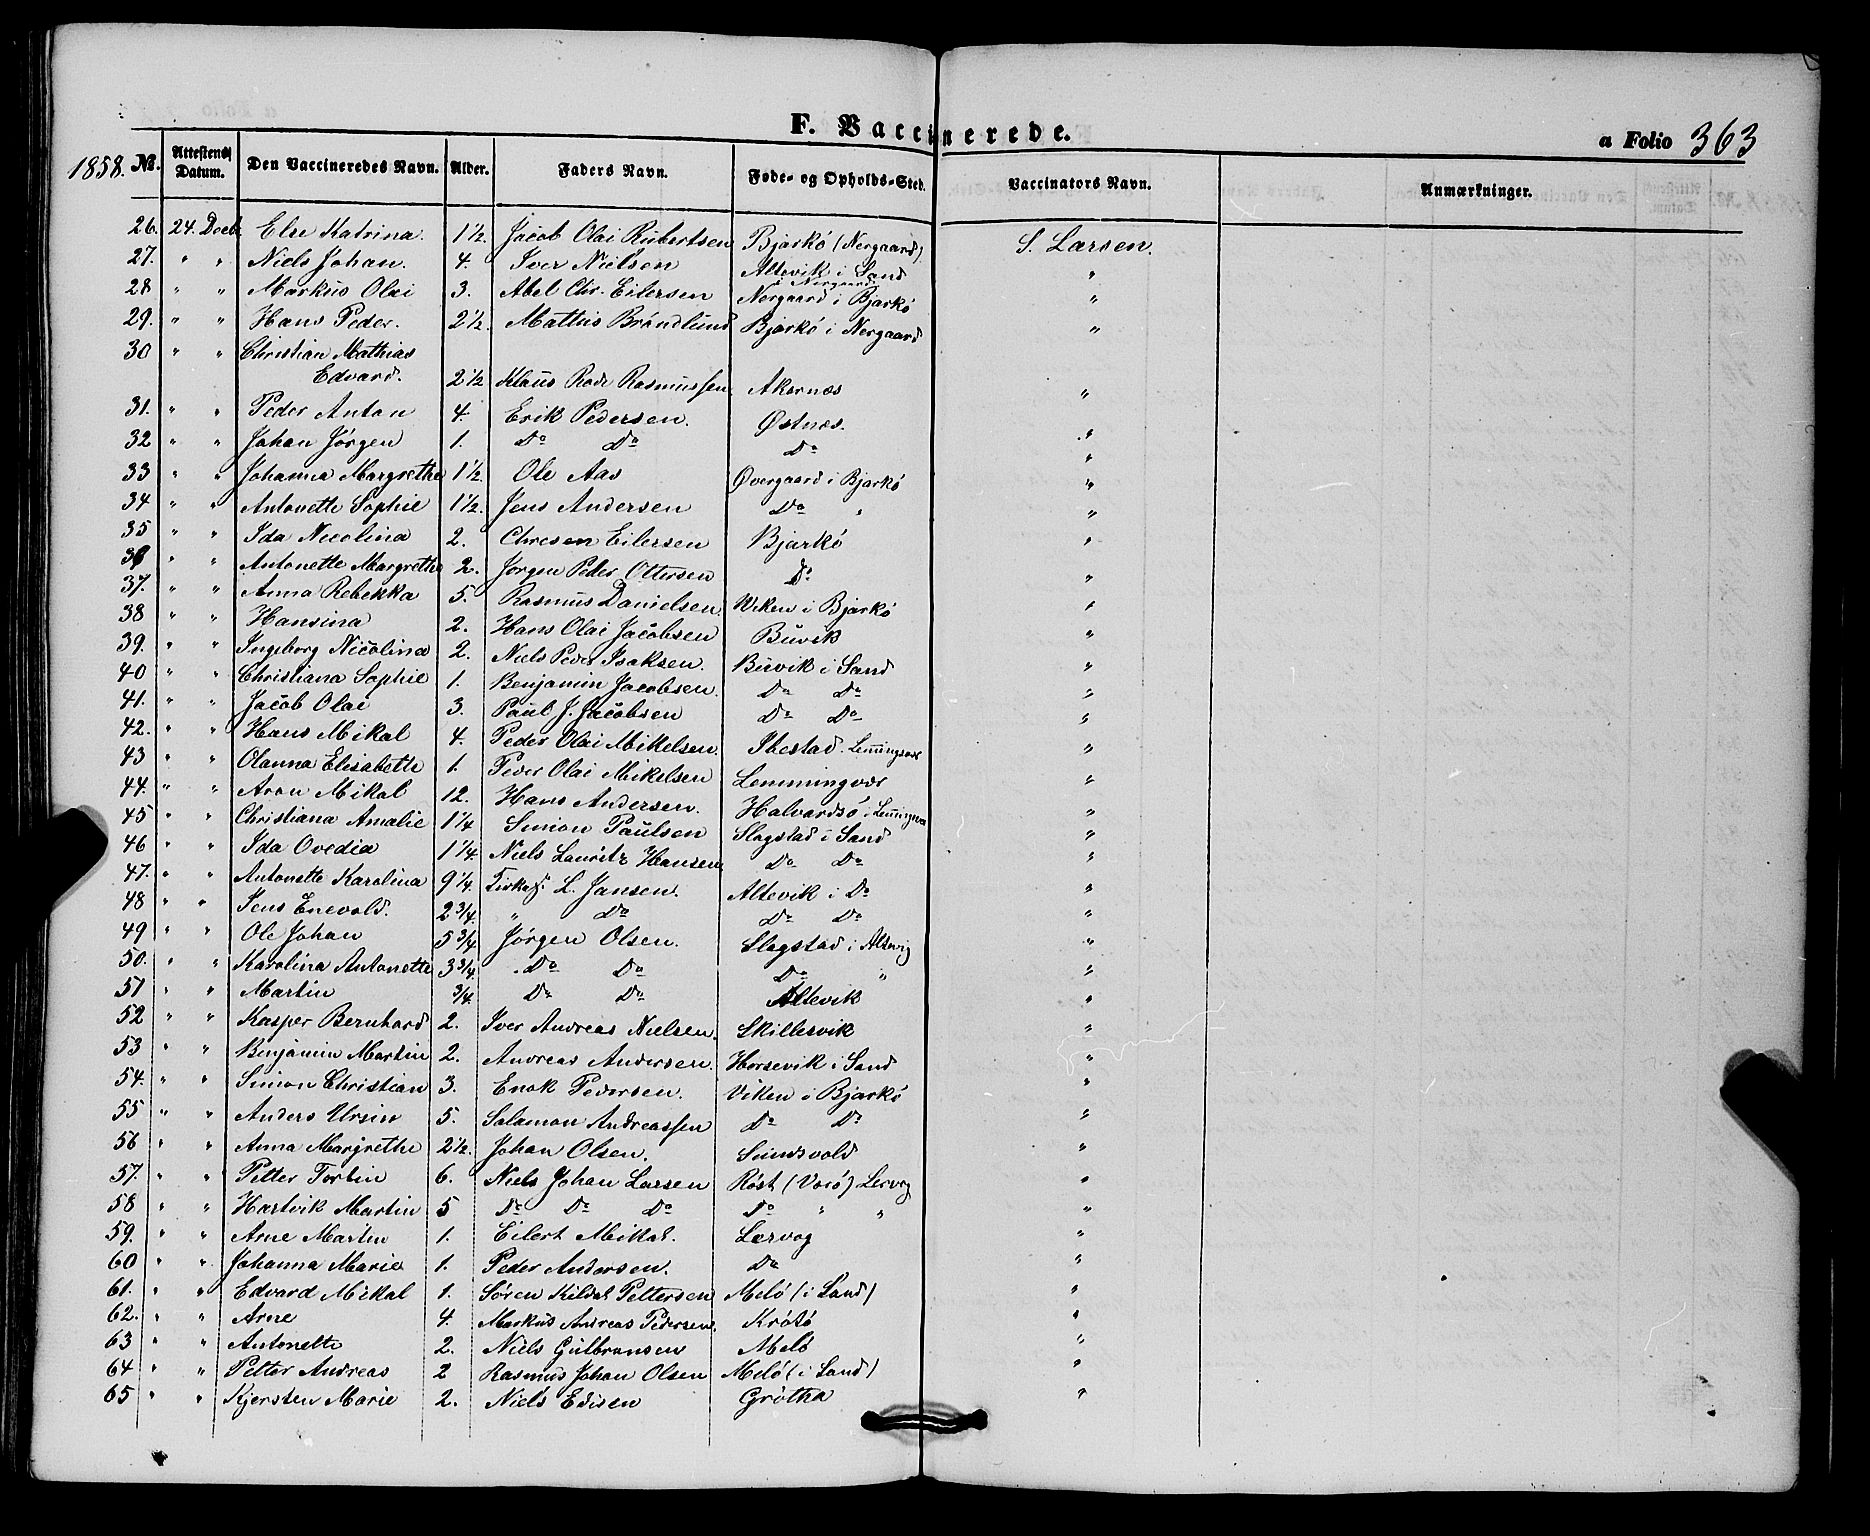 F. Vaccinerede.
a Folio 363
1858. No. Attestens Datum. Den Vaccineredes Navn. Alder. Faders Navn. Føde- og Opholds-Sted. Vaccinators Navn. Anmærkninger.
26. 24. Decb. Else Katrina. 1 1/2. Jacob Olai Rubertsen Bjarkö (Nergaard) S. Larsen.
27. " " Niels Johan. 4. Iver Nielsen Altevik i Sand "
28 " " Markus Olai 3. Abel Chr. Eilersen Nergaard i Bjarkö "
i Nergaard
29. " " Hans Peder. 2 1/2. Mattius Bröndlund Bjarkö i Nergaard "
30 " " Christian Mathias
Edvard. 2 1/2 Klaus Rode Rasmussen Akernæs "
31. " " Peder Anton 4. Erik Pedersen. Østnæs. "
32 " " Johan Jörgen 1. Do Do Do "
33 " " Johanna Margrethe 1 1/2. Ole Aas Øvergaard i Bjarkö "
34 " " Antonette Sophie 1 1/2. Jens Andersen Do " "
35 " " Ida Nicolina 2. Chresen Eilersen Bjarkö "
36 " " Antonette Margrethe 2. Jörgen Peder Ottersen Do "
37. " " Anna Rebekka 5. Rasmus Danielsen Viken i Bjarkö "
38 " " Hansina 2. Hans Olai Jacobsen Buvik "
39. " " Ingeborg Nicolina 2. Niels Peder Isaksen. Buvik i Sand "
40 " " Christiana Sophie 1. Benjamin Jacobsen. Do Do "
41. " " Jacob Olai 3. Paul J. Jacobsen Do Do "
42. " " Hans Mikal 4. Peder Olai Mikelsen. Ibestad. Lemingvær "
43 " " Olanna Elisabethe 1. Peder Olai Mikelsen Lemmingvær "
44. " " Aron Mikal 12. Hans Andersen. Halvardsö i Lemingvær "
45 " " Christiana Amalie 1 1/4 Simon Paulsen Slagstad i Sand "
46 " " Ida Ovedia 1 1/4. Niels Lauritz Hansen Do Do "
47. " " Antonette Karolina 9 1/4. L. Jansen. Altevik i Do "
48 " " Jens Enevold. 2 3/4. " Do Do Do "
49 " " Ole Johan 5 3/4 Jörgen Olsen. Slagstad i Altevig "
50. " " Karolina Antonette 3 3/4. Do Do Do " "
51 " " Martin 3/4. Do Do Altevik "
52 " " Kasper Bernhard 2. Iver Andreas Nielsen. Skillesvik "
53 " " Benjamin Martin 2. Andreas Andersen. Horsevik i Sand "
54. " " Simon Christian 3. Enok Pedersen. Viken i Bjarkö "
55 " " Anders Ursin 5. Salamon Andreassen Do Do "
56 " " Anna Margrethe 2 1/2. Johan Olsen. Sundsvold "
57. " " Petter Tortin 6. Niels Johan Larsen Röst (Værö) Lervog "
58 " " Hartvik Martin 5 Do Do Do Do " " "
59. " " Arne Martin 1. Eilert Mikal. Lærvog "
60 " " Johanna Marie 1. Peder Andersen. Do "
61. " " Edvard Mikal 1. Sören Kildal Pettersen Melö (i Sand) "
62. " " Arne 4. Markus Andreas Pedersen. Krötö "
63 " " Antonette 2. Niels Gulbransen Melö "
64 " " Petter Andreas 2 Rasmus Johan Olsen Melö (i Sand) "
65 " " Kjersten Marie 2. Niels Edisen Grötha "